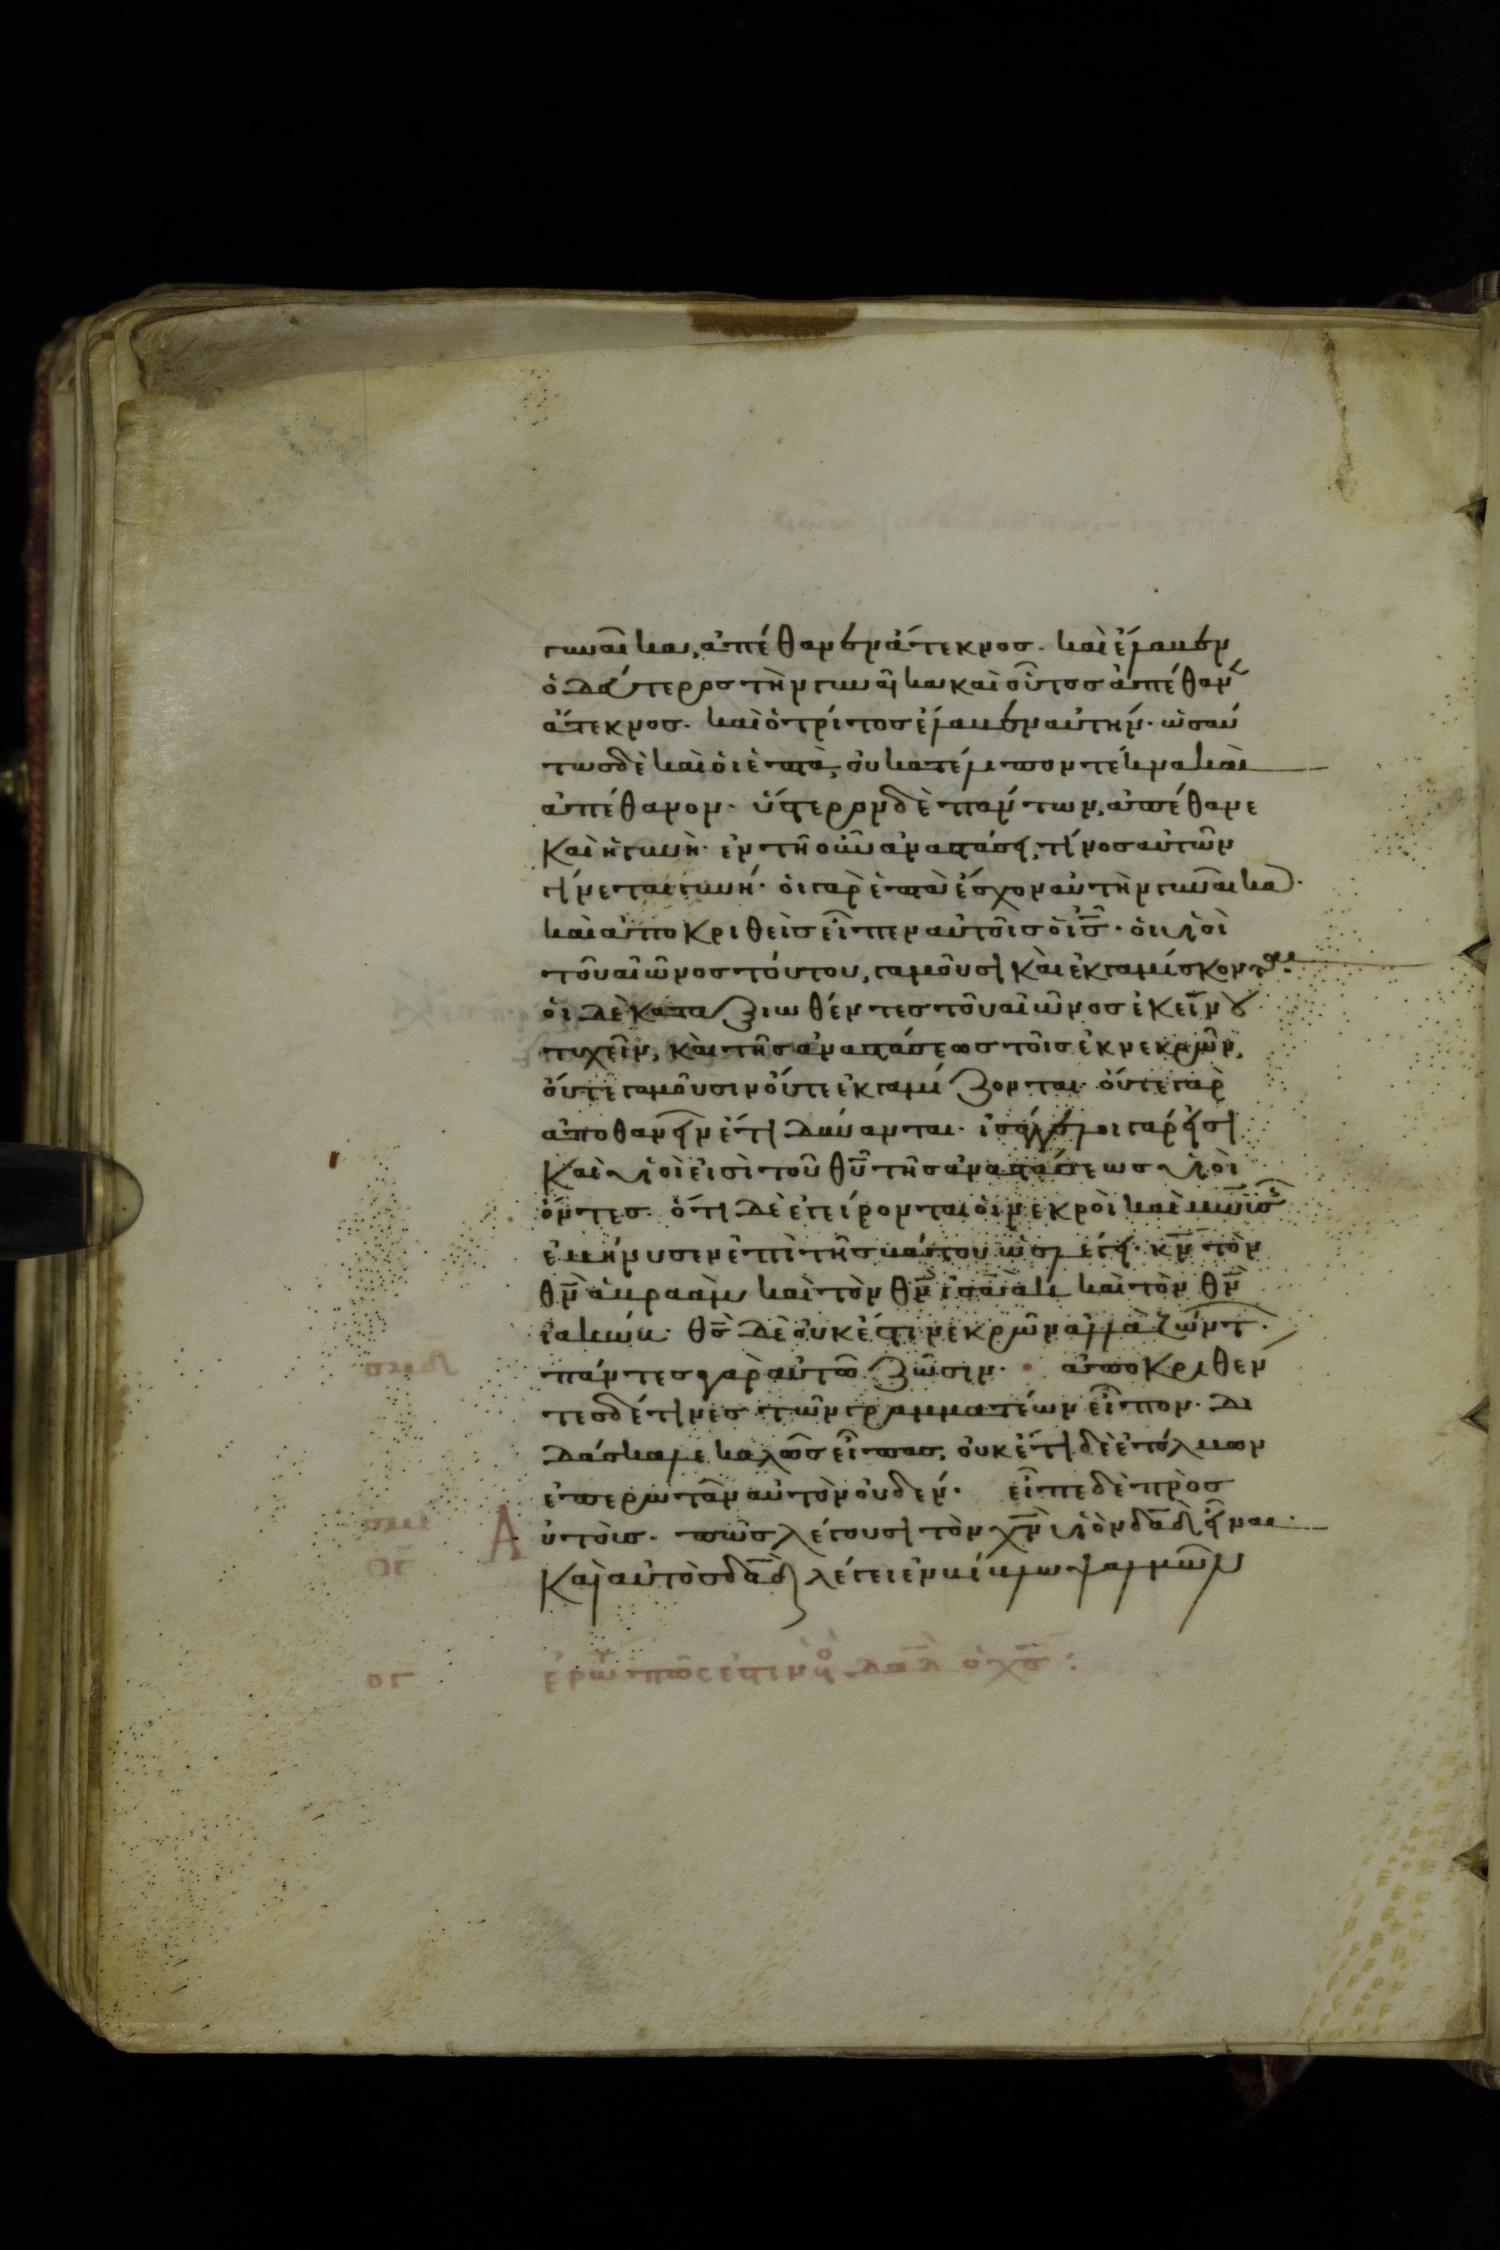 γυναῖκα, ἀπέθανεν ἄτεκνος. καὶ ἔλαβεν
ὁ δεύτερος τὴν γυναῖκα καὶ οὗτος ἀπέθανε
ἄτεκνος. καὶ ὁ τρίτος ἔλαβεν αὐτήν. ὡσαύ
τως δὲ καὶ οἱ ἑπτὰ, οὐ κατέλιπον τέκνα καὶ
ἀπέθανον. ὕστερον δὲ πάντων, ἀπέθανε
καὶ ἡ γυνὴ. ἐν τῆ οὖν ἀναστάσει, τίνος αὐτῶν
γίνεται γυνή. οἱ γὰρ ἑπτὰ ἔσχον αὐτὴν γυναῖκα.
καὶ ἀποκριθεὶς εἶπεν αὐτοῖς ὁ ις̅. οἱ υἱοὶ
τοῦ αἰῶνος τούτου, γαμοῦσι καὶ ἐκγαμίσκονται.
οἱ δὲ καταξιωθέντες τοῦ αἰῶνος ἐκείνου
τυχεῖν, καὶ τῆς ἀναστάσεως τοῖς ἐκ νεκρῶν,
οὔτε γαμοῦσιν οὔτε ἐκγαμίζονται. οὔτε γὰρ
ἀποθανεῖν ἔτι δύνανται. ἰσάγγελοι γάρ εἰσι
καὶ υἱοὶ εἰσὶ τοῦ θυ̅ τῆς ἀναστάσεως υἱοὶ
ὄντες. ὅτι δὲ ἐγείρονται οἱ νεκροὶ καὶ μωϋσῆς
ἐμήνυσεν ἐπὶ τῆς βάτου ὡς λέγει. κν̅ τὸν
θν̅ ἀβραὰμ καὶ τὸν θν̅ ἰσαὰκ καὶ τὸν θν̅
ἰακώβ. θς̅ δὲ οὐκ ἔστι νεκρῶν ἀλλὰ ζώντων.
πάντες γὰρ αὐτῶ ζῶσιν. ἀποκριθέν
τες δέ τινες τῶν γραμματέων εἶπον. δι
δάσκαλε καλῶς εἶπας, οὐκ ἔτι δὲ ἐτόλμων
ἐπερωτᾶν αὐτὸν οὐδέν. εἶπε δὲ πρὸς
Αὐτοὺς. πῶς λέγουσι τὸν χν̅ υἱὸν δαδ̅ εἶναι.
καὶ αὐτὸς δαδ̅ λέγει ἐν βίβλω ψαλμῶν